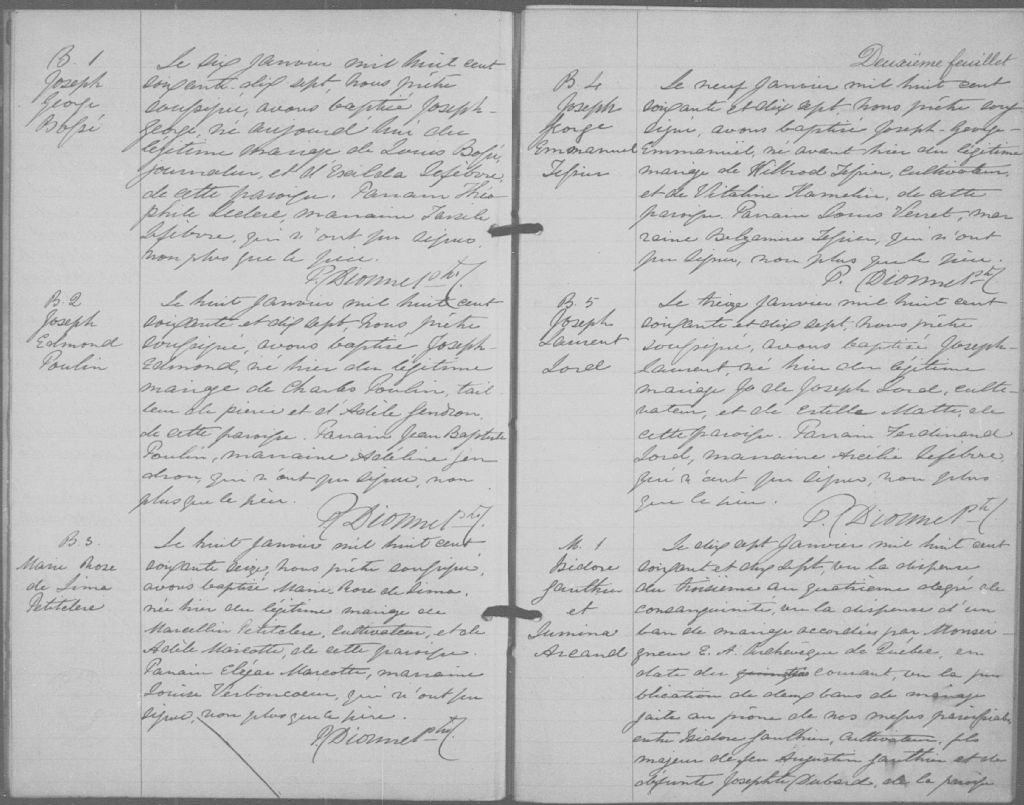 B. 1
Joseph
George
Bossé
Le dix Janvier mil huit cent
soixante-dix sept, nous prêtre
soussigné, avons baptisé Joseph-
George, né aujourd'hui du
légitime mariage de Louis Bossé,
journalier, et d'Exilda Lefebvre,
de cette paroisse. Parrain Théo
phile Leclerc, marraine
Lefebvre, qui n'ont pu signer,
non plus que le père.
P. Dionne Ptre
B. 2
Joseph
Edmond
Poulin
Le huit Janvier mil huit cent
soixante et dix sept, Nous prêtre
soussigné, avons baptisé Joseph-
Edmond, né hier du légitime
mariage de Charles Poulin, tail
leur de pierre et d'Adèle Gendron,
de cette paroisse. Parrain Jean Baptiste
Poulin, marraine Adéline Gen
dron, qui n'ont pu signer, non
plus que le père.
P. Dionne Ptre
B. 3.
Marie Rose
de Lima
Petitclerc
Le huit Janvier mil huit cent
soixante, nous prêtre soussigné,
avons baptisé Marie Rose de Lima,
née hier du légitime mariage de
Marcellin Petitclerc, cultivateur, et de
Adèle Marcotte, de cette paroisse.
Parrain Eléjar Marcotte, marraine
Louise Verboncoeur, qui n'ont pu
signer, non plus que le père.
P. Dionne Ptre
Deuxième feuillet
B. 4
Joseph
George
Emmanuel
Tessier
Le neuf Janvier mil huit cent
soixante et dix sept nous prêtre sous
signé, avons baptisé Joseph-George-
Emmanuel, né avant hier du légitime
mariage de Tessier, cultivateur,
et de Vitaline Hamelin, de cette
paroisse. Parrain Louis Verret, mar
raine Belzamire Tessier, qui n'ont
pu signer, non plus que le père.
P. Dionne Ptre
B. 5
Joseph
Laurent
Lord
Le treize Janvier mil huit cent
soixante et dix sept, nous prêtre
soussigné, avons baptisé Joseph-
Laurent né hier du légitime
mariage de Joseph Lord, culti-
vateur, et de Estelle Matte, de
cette paroisse. Parrain Ferdinand
Lord, marraine Arcélie Lefebvre,
qui n'ont pu signer, non plus
que le père.
P. Dionne Ptre
M. 1
Isidore
Gauthier
et
Lumina
Arcand
Le dix sept Janvier mil huit cent
soixante et dix sept, vu la dispense
du troisième au quatrième degré de
consanguinité, vu la dispense d'un
ban de mariage accordée par Monsei-
gneur E. A. Archevêque de Québec, en
date du courant, vu la pu
blication de deux bans de mariage
faite au prône de nos messes paroissiales
entre Isidore Gauthier, Cultivateur, fils
majeur de feu Augustin Gauthier et de
défunte Josephte Dubord, de la paroisse